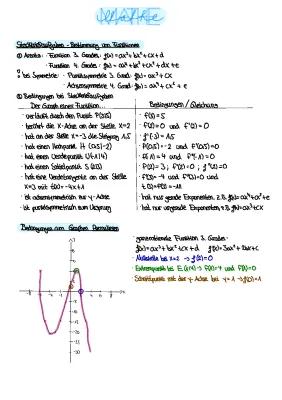 Mathe
Steckbriefaufgaben - Bestimmung von Funktionen
① Ansatz: · Funktion 3. Grades: f(x) = ax³+bx²+cx+d
· Funktion 4. Grades: f(x) = ax⁴+bx³+cx²+dx+e
bei Symmetrie: · Punktsymmetrie 3. Grad: f(x)=ax³+cx
· Achsensymmetrie 4. Grad: f(x)=ax⁴+cx²+e
② Bedingungen bei Steckbriefaufgaben
Der Graph einer Funktion... Bedingungen / Gleichung
· verläuft durch den Punkt P(3|5) · f(3)=5
· berührt die x-Achse an der Stelle x=2 · f(2)=0 und f'(2)=0
· hat an der Stelle x=-3 die Steigung 1,5 · f'(-3)=1,5
· hat einen Hochpunkt H (0,5|-2) · f(0,5)=-2 und f'(0,5)=0
· hat einen Wendepunkt W(-1|4) · f(-1)=4 und f''(-1)=0
· hat einen Sattelpunkt S(2|3) · f(2)=3; f'(2)=0; f''(2)=0
· hat eine Wendetangente an der Stelle · f'(3)=-4 und f''(3)=0 und
x=3 mit t(x)=-4x+1 t(3)=f(3)=-11
· ist achsensymmetrisch zur y-Achse · hat nur gerade Exponenten, z.B. f(x)=ax⁴+cx²+e
· ist punktsymmetrisch zum Ursprung · hat nur ungerade Exponenten, z.B. f(x)=ax³+cx
Bedingungen am Graphen formulieren
· ganzrationale Funktion 3. Grades:
f(x)=ax³+bx²+cx+d f'(x)=3ax²+2bx+c
· Nullstelle bei x=2 → f(2)=0
· Schnittpunkt mit der y-Achse bei y=1 → f(0)=1